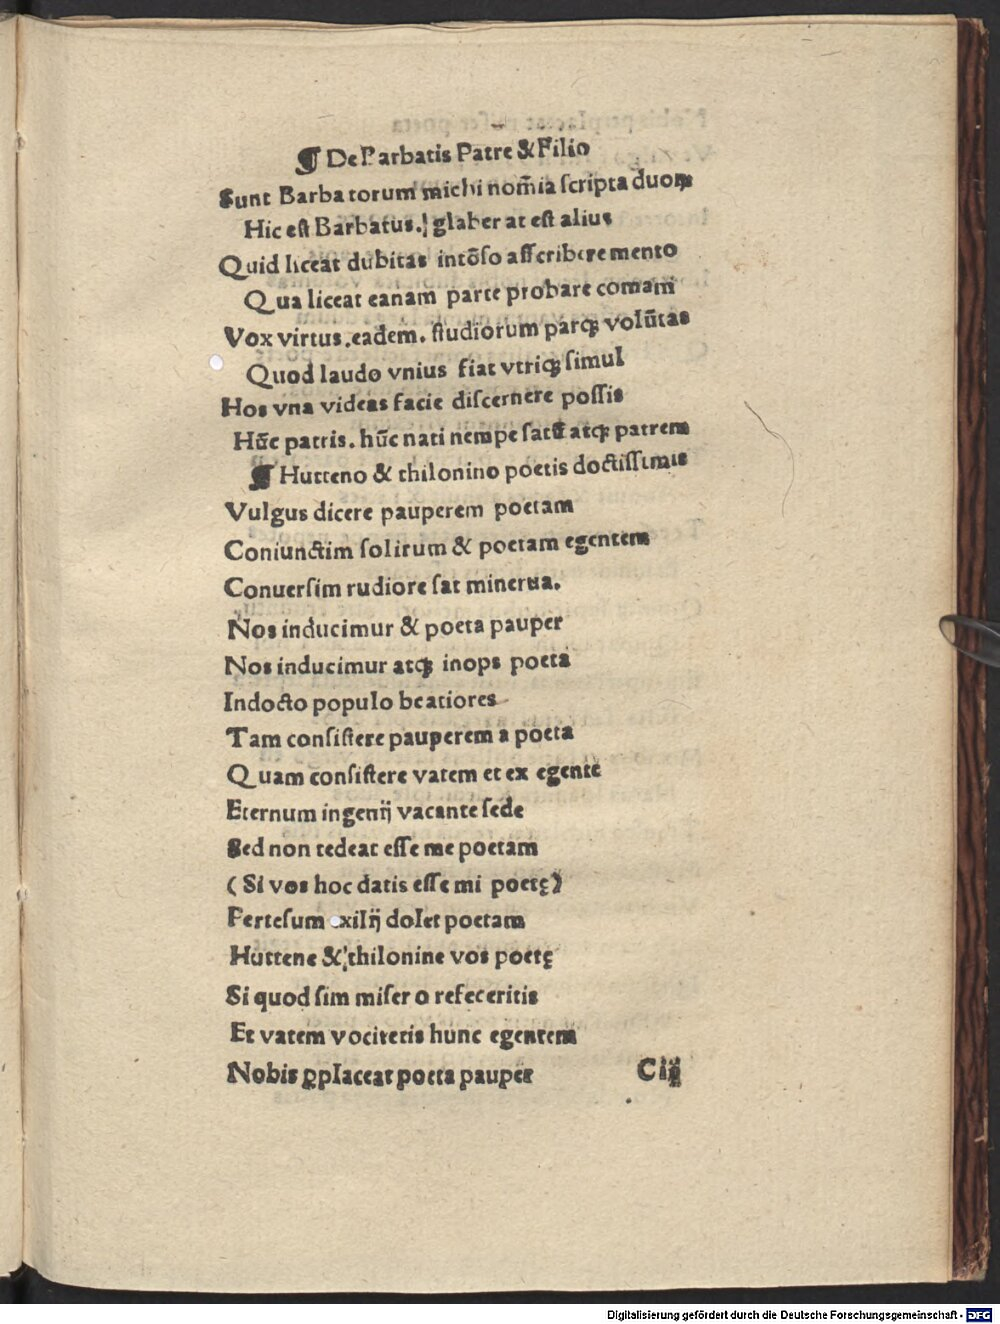 ¶ De Barbatis Patre & Filio
Sunt Barbatorum michi nom̄ia ſcripta duoꝝ
Hic eſt Barbatus.¦ glaber at eſt alius
Quid liceat dubitas intōſo aſſcribere mento
Qua liceat eanam parte probare comam
Vox virtus.eadem. ſtudiorum parqꝫ volūtas
Quod laudo vnius fiat vtriqꝫ ſimul
Hos vna videas facie diſcernere poſſis
Hūc patris. hūc nati nempe ſatū atqꝫ patrem
¶ Hutteno & thilonino poetis doctiſſimis
Vulgus dicere pauperem poetam
Coniunctim ſolitum & poetam egentem
Conuerſim rudiore ſat minerua.
Nos inducimur & poeta pauper
Nos inducimur atqꝫ inops poeta
Indocto populo beatiores
Tam conſiſtere pauperem a poeta
Quam conſiſtere vatem et ex egente
Eternum ingenij vacante ſede
Sed non tedeat eſſe me poetam
(Si vos hoc datis eſſe mi poetę)
Perteſum exilij dolet poetam
Huttene &¦thilonine vos poetę
Si quod ſim miſer o refeceritis
Et vatem vociteris hunc egentem
Nobis ꝑplaceat poeta pauper
Ciij
Digitalisierung gefördert durch die Deutsche Forschungsgemeinschaft - DFG